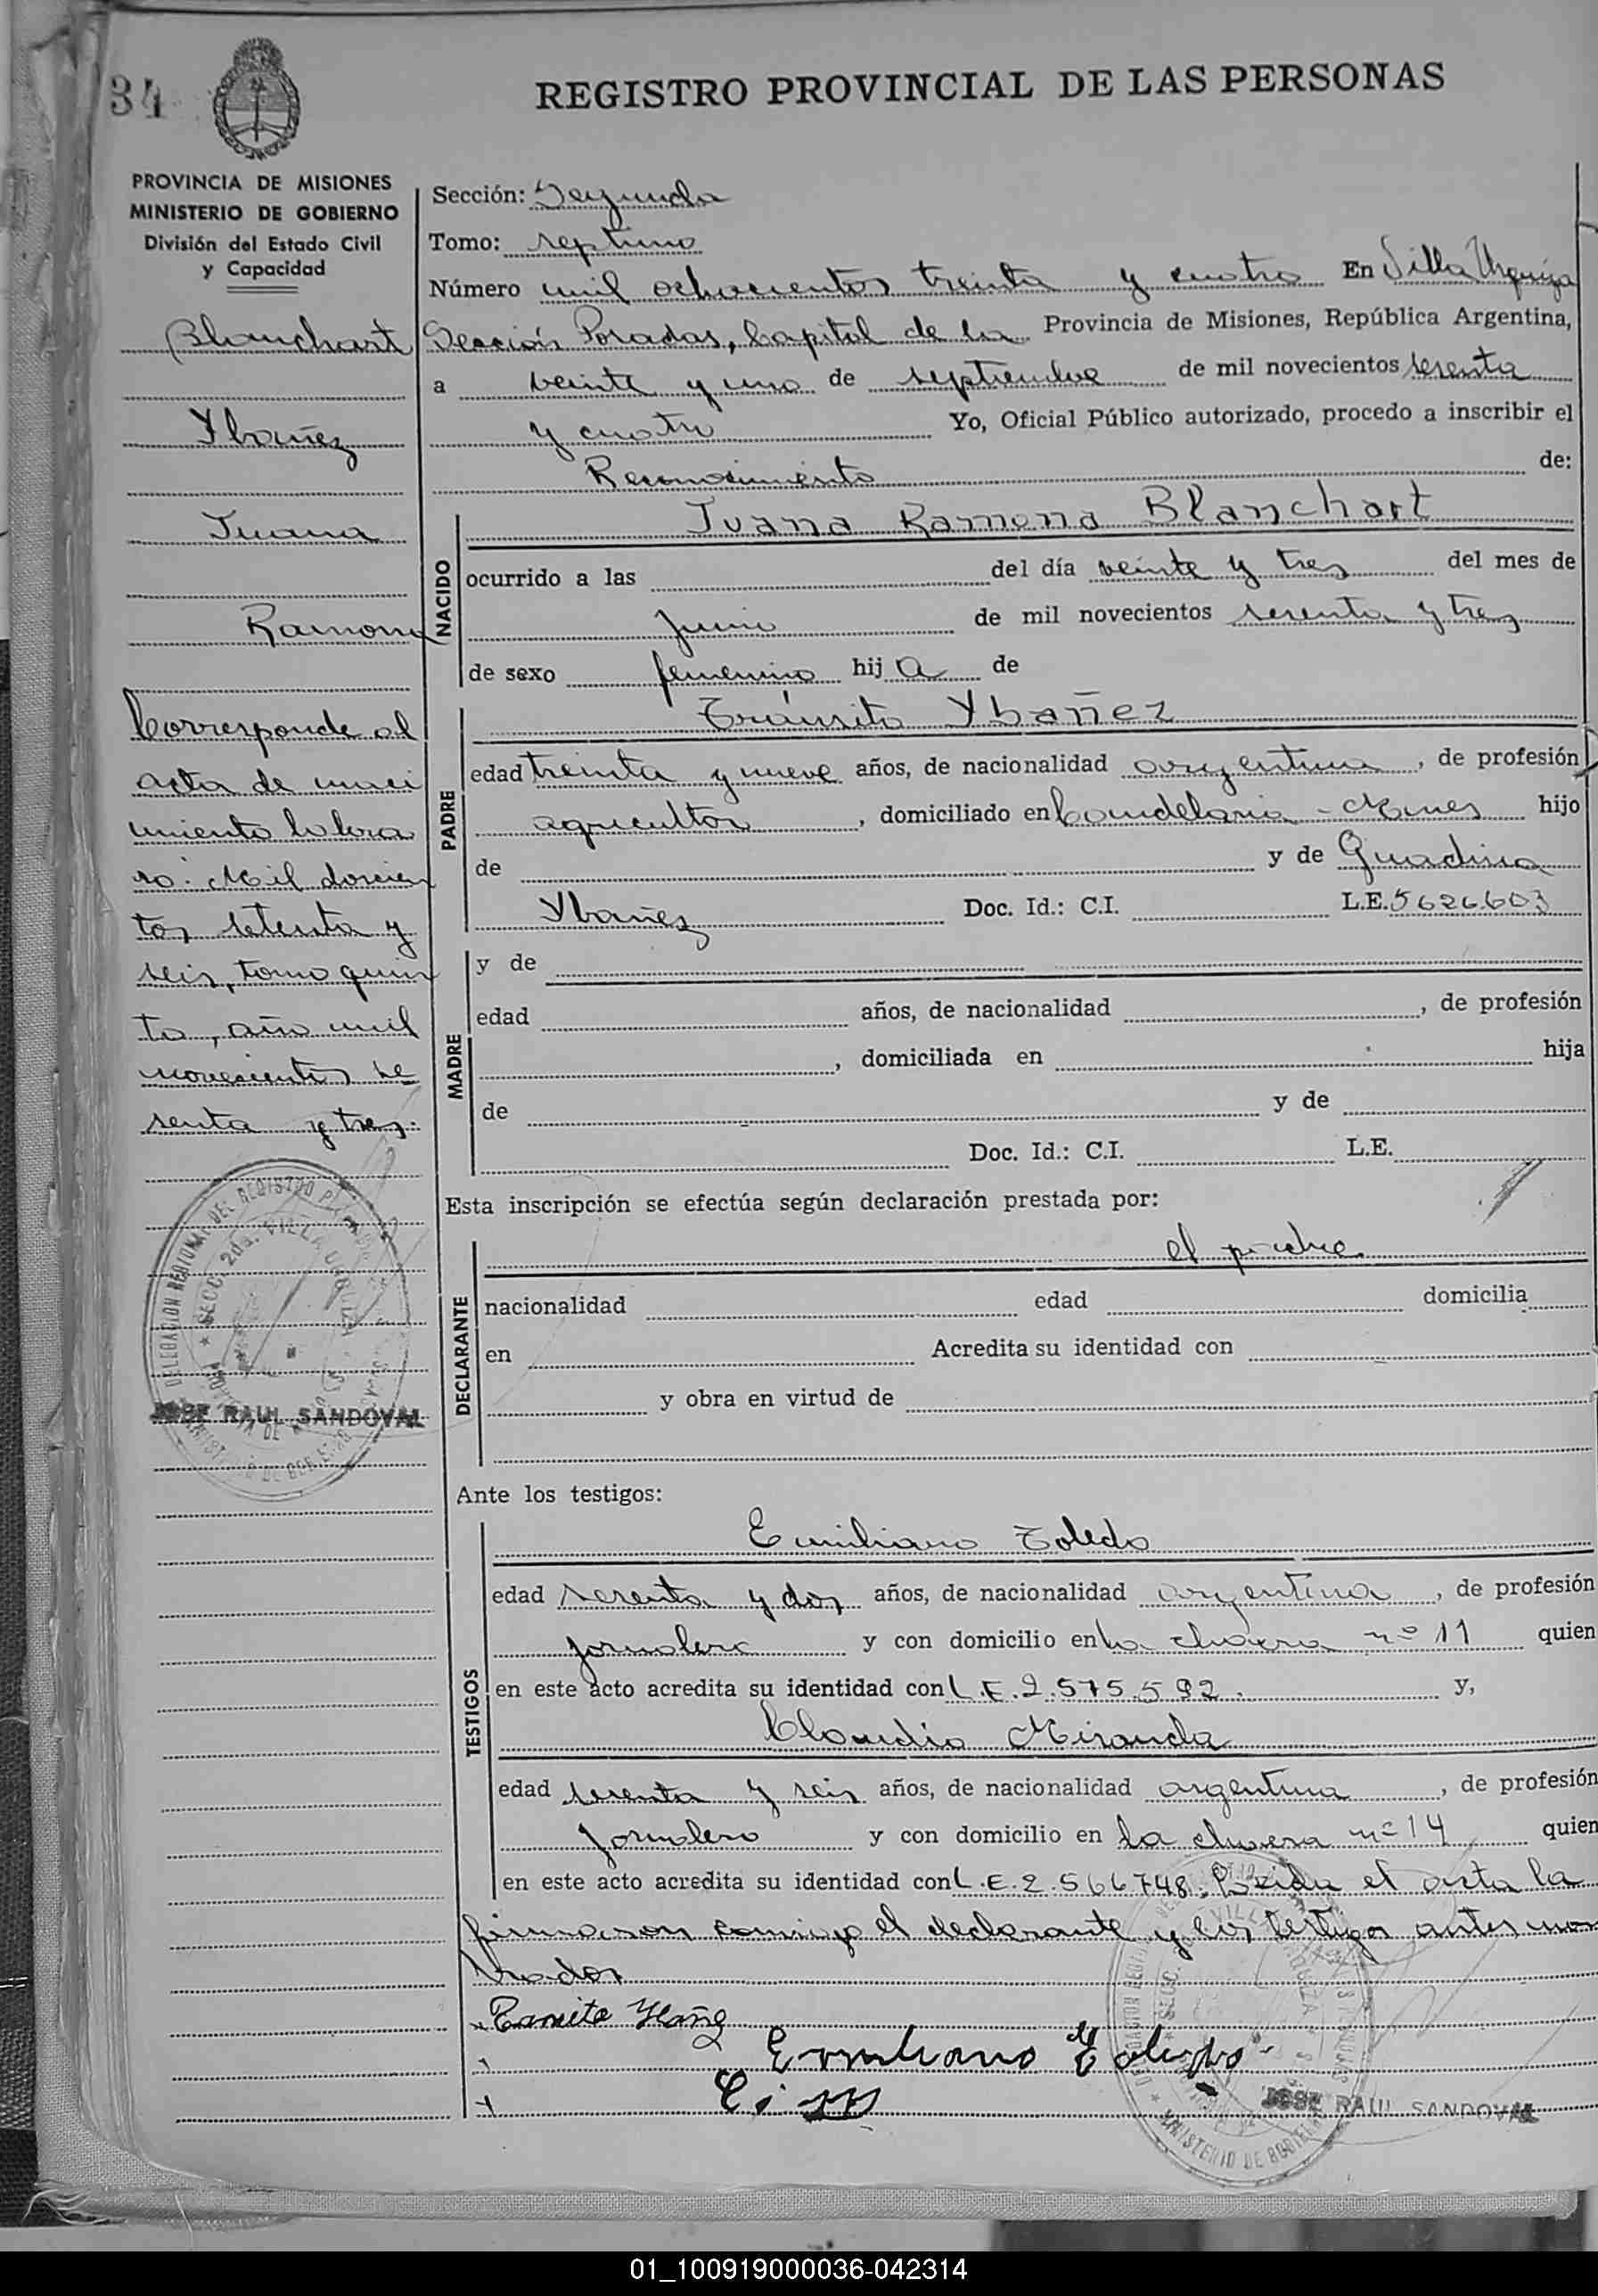 34
REGISTRO PROVINCIAL DE LAS PERSONAS
PROVINCIA DE MISIONES
MINISTERIO DE GOBIERNO
División del Estado Civil
y Capacidad
Blanchart
Ybañez
Juana
Ramona
Corresponde al
acta de naci
miento
ro: Mil doscien
tos setenta y
seis, tomo quin
to, año mil
novecientos se
senta y tres.
JOSE RAUL SANDOVAL
Sección: Segunda
Tomo: septimo
Número mil ochocientos treinta y cuatro En Villa Urquiza
Sección Posadas, Capital de la Provincia de Misiones, República Argentina,
a veinte y uno de septiembre de mil novecientos sesenta
y cuatro Yo, Oficial Público autorizado, procedo a inscribir el
Reconocimiento de:
NACIDO
Juana Ramona Blanchart
ocurrido a las del día veinte y tres del mes de
Junio de mil novecientos sesenta y tres
de sexo femenino hija de
PADRE
Tránsito Ybañez
edad treinta y nueve años, de nacionalidad argentina, de profesión
agricultor, domiciliado en Candelaria - Mnes hijo
de y de Guadina
Ybañez Doc. Id.: C.I. L.E. 5626603
MADRE
y de
edad años, de nacionalidad , de profesión
, domiciliada en hija
de y de
Doc. Id.: C.I. L.E.
Esta inscripción se efectúa según declaración prestada por:
DECLARANTE
el padre
nacionalidad edad domicilia
en Acredita su identidad con
y obra en virtud de
Ante los testigos:
TESTIGOS
Emiliano Toledo
edad sesenta y dos años, de nacionalidad argentina, de profesión
jornalero y con domicilio en la chacra nº 11 quien
en este acto acredita su identidad con L.E. 2.575.592. y,
Claudio Miranda
edad sesenta y seis años, de nacionalidad argentina, de profesión
jornalero y con domicilio en la chacra nº 14 quien
en este acto acredita su identidad con L.E. 2.566748. Leida el acta la
firmaron conmigo el declarante y los testigos antes nom
brados
Emiliano Toledo
JOSE RAUL SANDOVAL
01_100919000036-042314